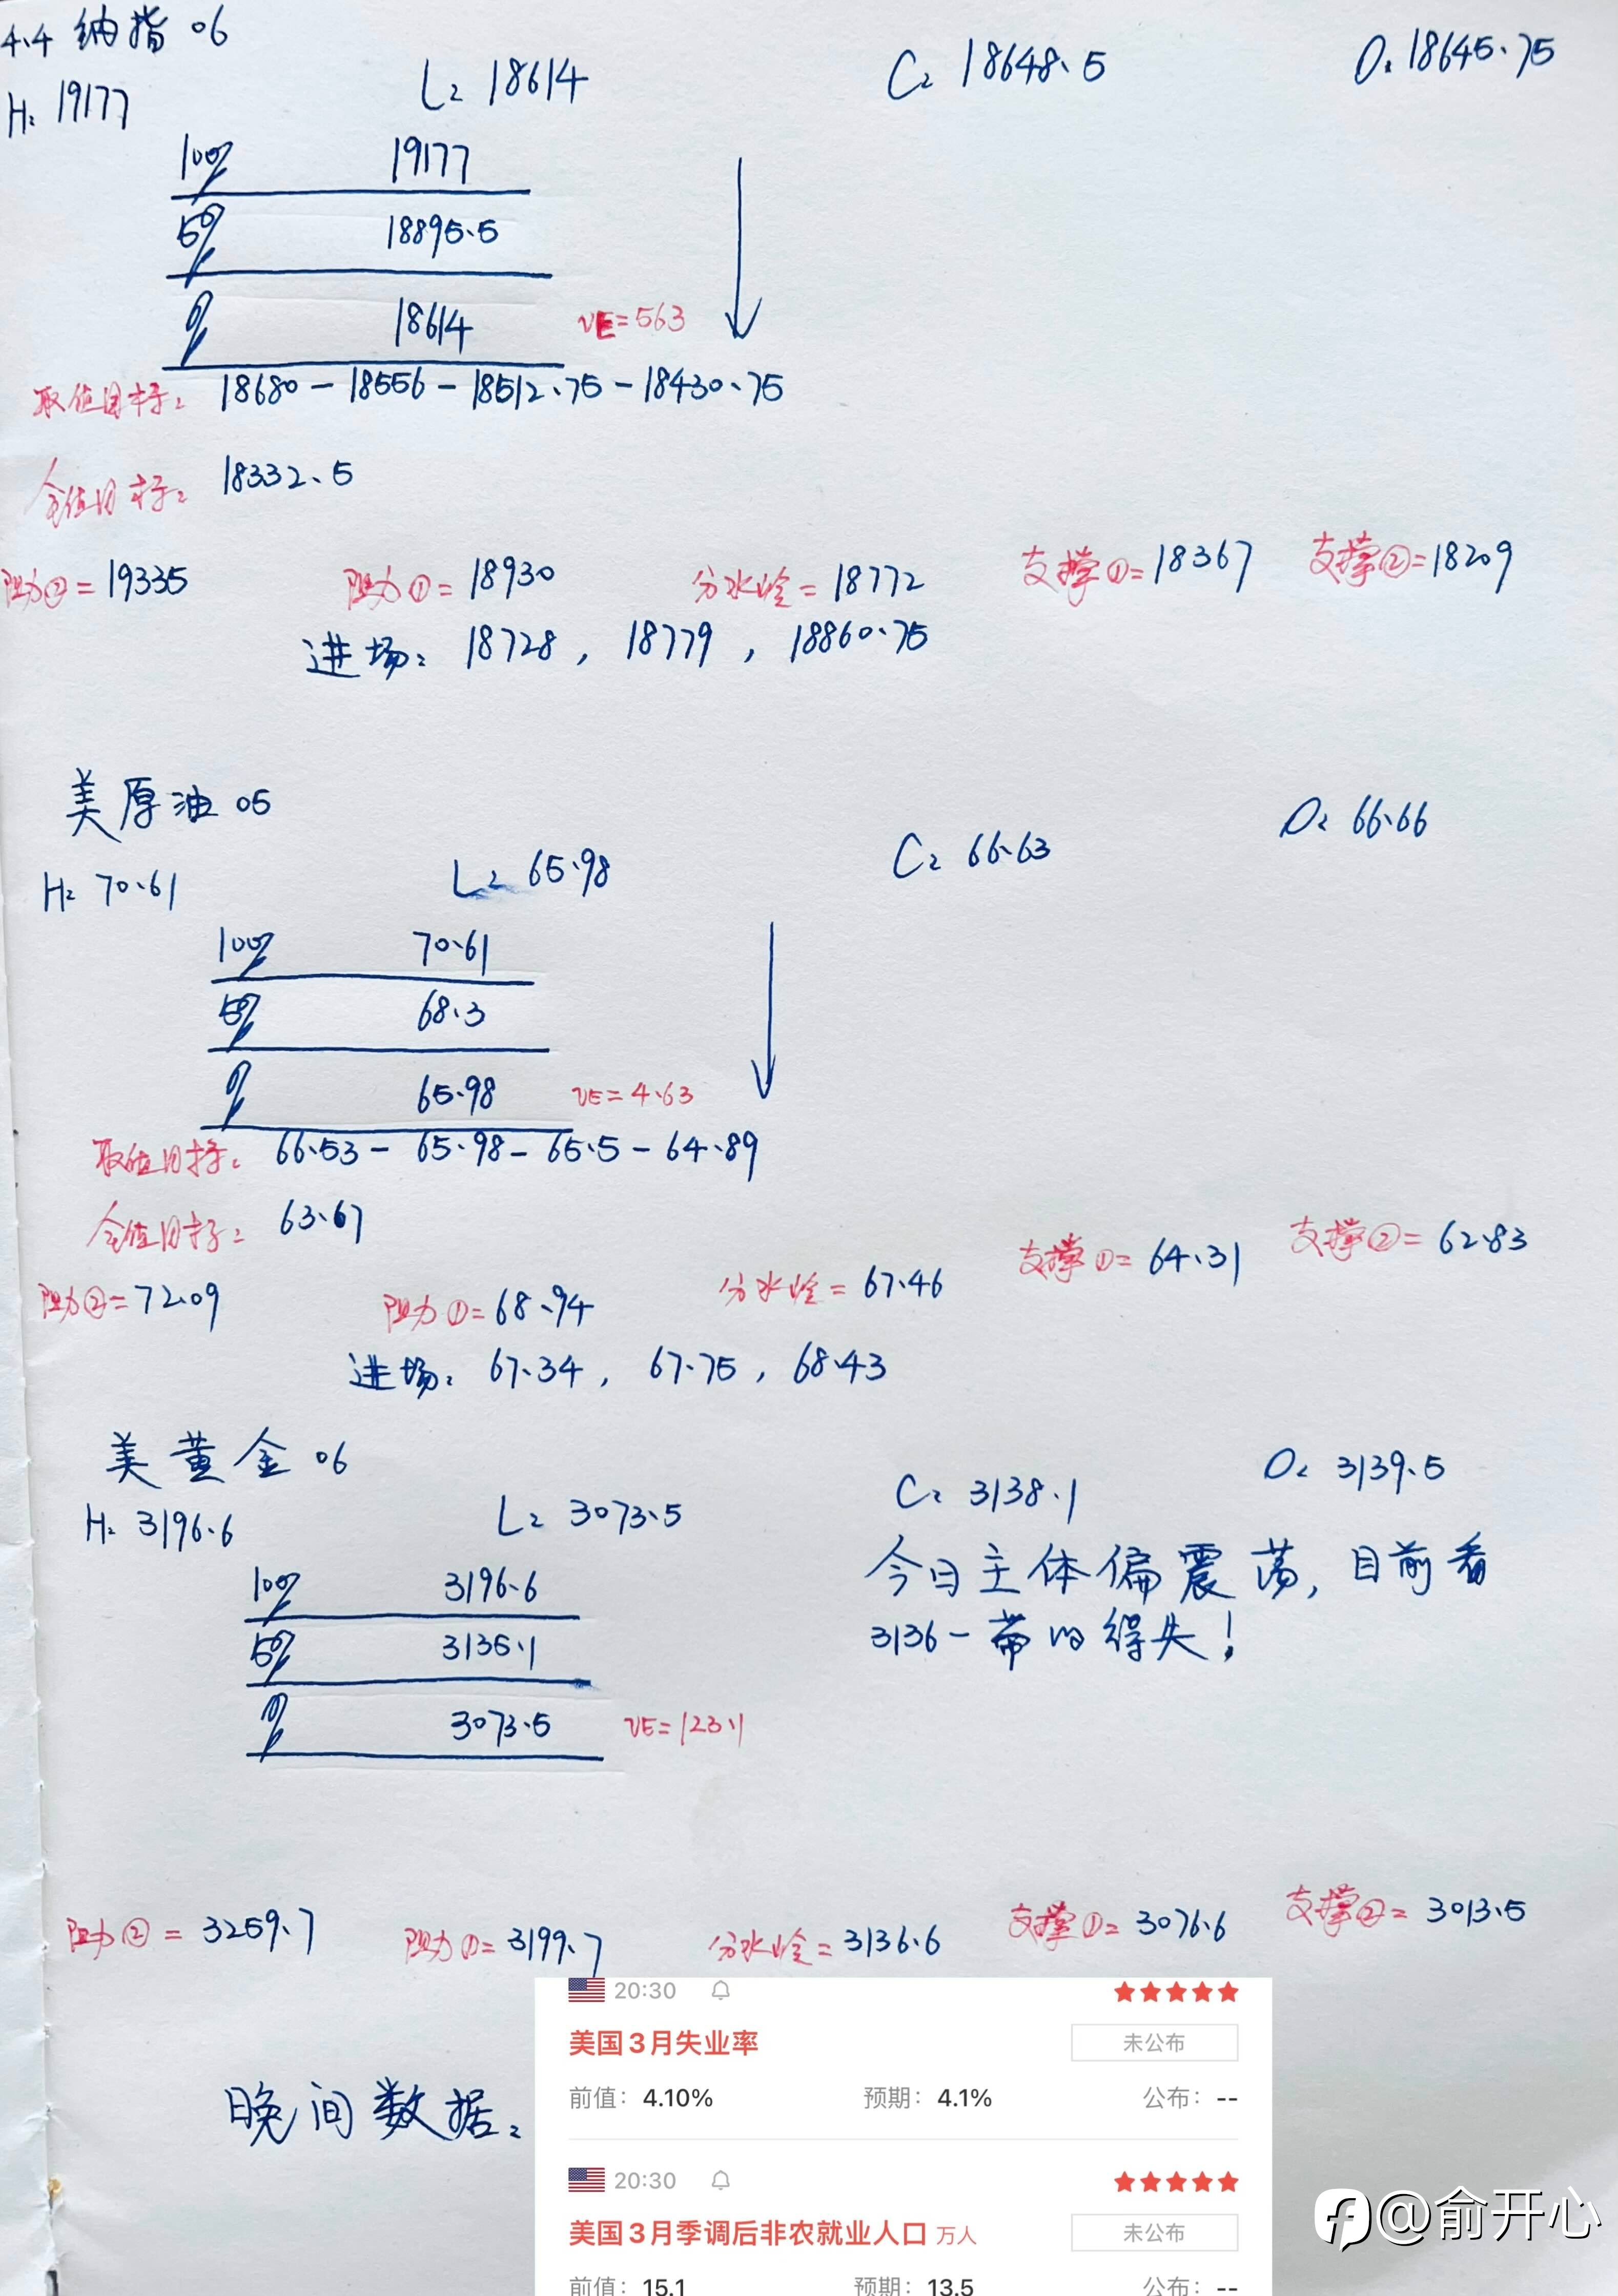 4.4 纳指 06
H: 19177 L: 18614 C: 18648.5 O: 18645.75
100% 19177
50% 18895.5
0% 18614 VE=563
取值目标: 18680 - 18556 - 18512.75 - 18430.75
全值目标: 18332.5
阻力②=19335 阻力①=18930 分水岭=18772 支撑①=18367 支撑②=18209
进场: 18728, 18779, 18860.75
美原油 05
H: 70.61 L: 65.98 C: 66.63 O: 66.66
100% 70.61
50% 68.3
0% 65.98 VE=4.63
取值目标: 66.53 - 65.98 - 65.5 - 64.89
全值目标: 63.67
阻力②=72.09 阻力①=68.94 分水岭=67.46 支撑①=64.31 支撑②=62.83
进场: 67.34, 67.75, 68.43
美黄金 06
H: 3196.6 L: 3073.5 C: 3138.1 O: 3139.5
100% 3196.6
50% 3135.1
0% 3073.5 VE=123.1
今日主体偏震荡,目前看
3136一带的得失!
阻力②=3259.7 阻力①=3199.7 分水岭=3136.6 支撑①=3076.6 支撑②=3013.5
晚间数据:
20:30
美国3月失业率 未公布
前值: 4.10% 预期: 4.1% 公布: --
20:30
美国3月季调后非农就业人口 万人 未公布
前值: 15.1 预期: 13.5 公布: --
@俞开心